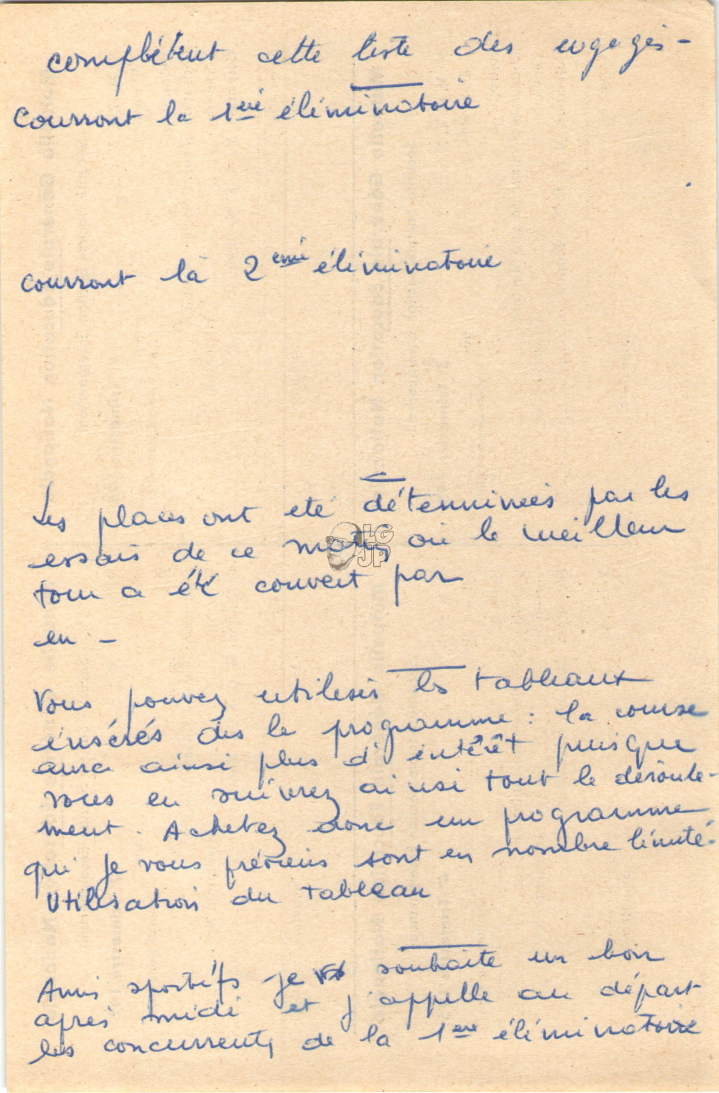 complètent cette liste des engagés -
Courront la 1ère éliminatoire
courront la 2ème éliminatoire
Les places ont été déterminées par les
essais de ce matin où le meilleur
tour a été couvert par
en -
Vous pouvez utiliser les tableaux
insérés ds le programme : la course
aura ainsi plus d'intérêt puisque
vous en suivrez ainsi tout le déroule-
ment. Achetez donc un programme
qui je vous préviens sont en nombre limité.
Utilisation du tableau
Amis sportifs je souhaite un bon
après midi et j'appelle au départ
les concurrents de la 1ère éliminatoire
LG
JP